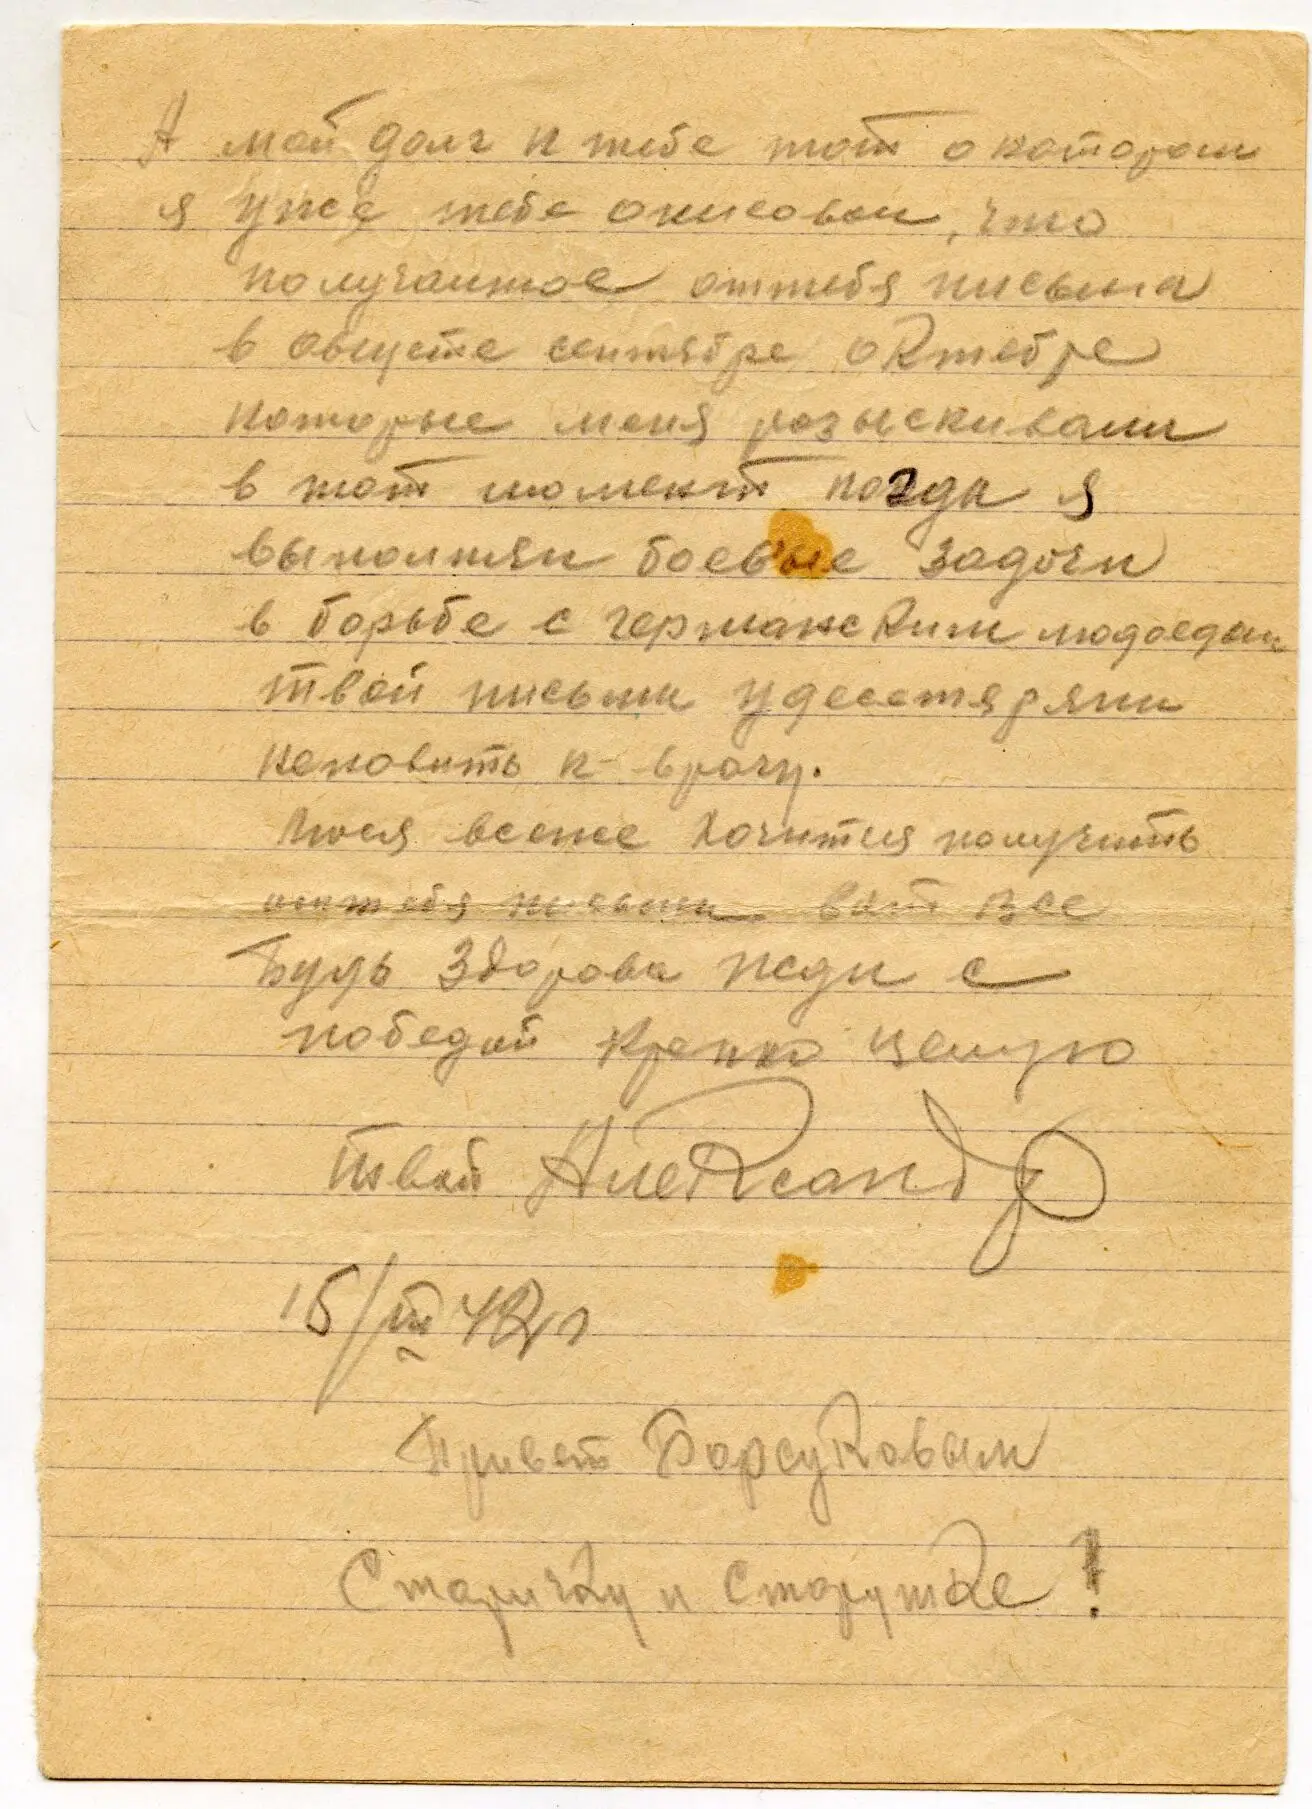 А мой долг к тебе тот о котором
я уже тебе описовал, что
получаитое оттебя письма
в августе сентябре октебре
которые меня розыскивали
в тот момент когда я
выполнял боевые задочи
в борьбе с германским людоедам
твои письма удесетяряли
неновить к врагу.
Люся всеже хочится получить
оттебя письма. вот все
Будь здорова жди с
победой крепко целую
твой Александр
15/III 42 г
Привет Борсуковым
Старичку и Старушке!